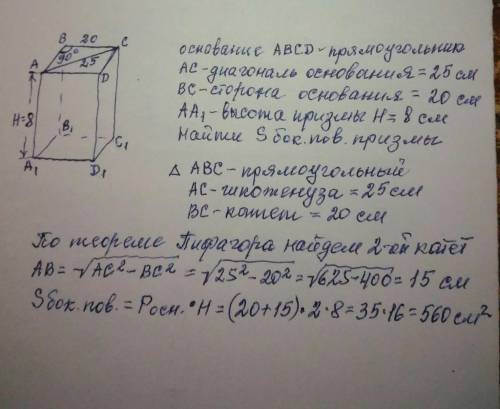 B 20 C
90°
A 25 D
H=8
B₁ C₁
A₁ D₁
основание ABCD-прямоугольник
AC-диагональ основания=25см
BC-сторона основания = 20 см
AA₁-высота призмы H= 8 см
Найти Sбок.пов. призмы
△ ABC-прямоугольный
AC-гипотенуза = 25см
BC-катет = 20 см
По теореме Пифагора найдем 2-ой катет
AB= √AC²-BC² = √25²-20² = √625-400 = 15 см
Sбок.пов. = Pосн.•H = (20+15)•2•8=35•16=560 см²